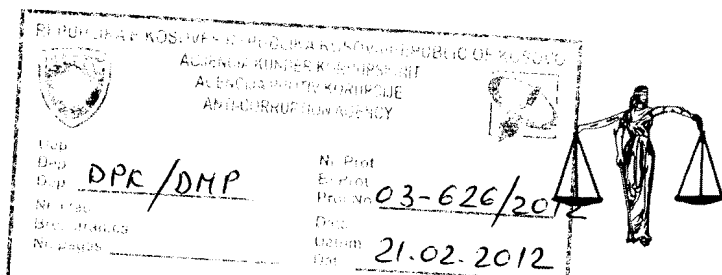 REPUBLIKA E KOSOVËS REPUBLIKA KOSOVO REPUBLIC OF KOSOVO
AGJENCIA KUNDËR KORRUPSIONIT
AGENCIJA PROTIV KORUPCIJE
ANTI-CORRUPTION AGENCY
Dep
Dep
Dep DPK/DMP
Nr. Prot
Br. Prot
Prot No 03-626/2012
No pages
Datum
Dat 21.02.2012